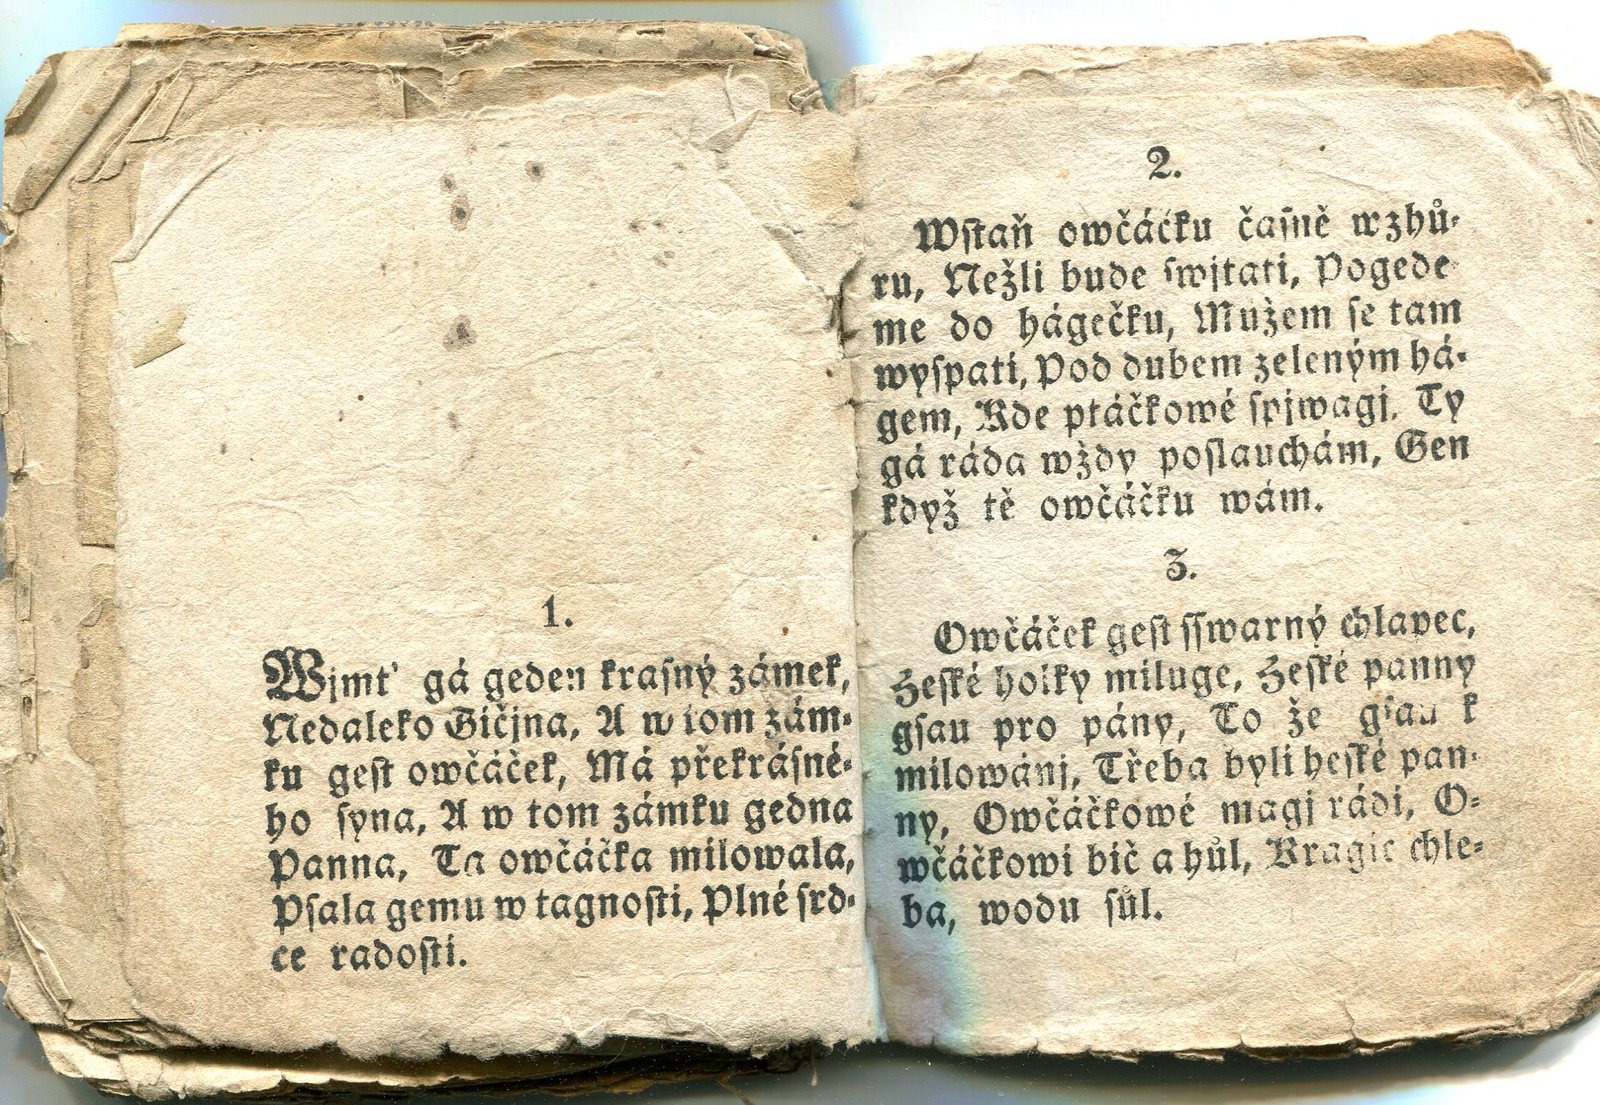 1.
Wjmť gá geden krasný zámek,
Nedaleko Gičjna, A w tom zám-
ku gest owčáček, Má překrásné-
ho syna, A w tom zámku gedna
Panna, Ta owčáčka milowala,
Psala gemu w tagnosti, Plné srd-
ce radosti.
2.
Wstaň owčáčku časně wzhů-
ru, Nežli bude swjtati, Pogede-
me do hágečku, Mužem se tam
wyspati, Pod dubem zeleným há-
gem, Kde ptáčkowé spjwagj. Ty
gá ráda wždy poslauchám, Gen
když tě owčáčku wám.
3.
Owčáček gest sswarný chlapec,
Heské holky miluge, Heské panny
gsau pro pány, To že gsau k
milowánj, Třeba byli heské pan-
ny, Owčáčkowé magj rádi, O-
wčáčkowi bič a hůl, Kragic chle-
ba, wodu sůl.